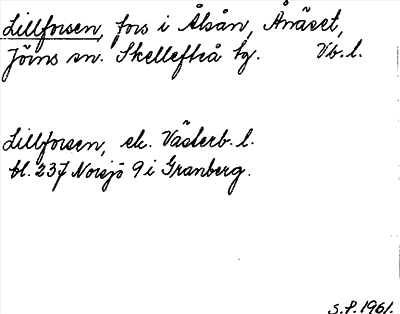 Lillforsen, fors i Ålsån, Ånäset,
Jörns sn. Skellefteå tg. Vb. l.
Lillforsen, ek. Västerb. l.
bl. 237 Norsjö 9 i Granberg.
S.P. 1961.